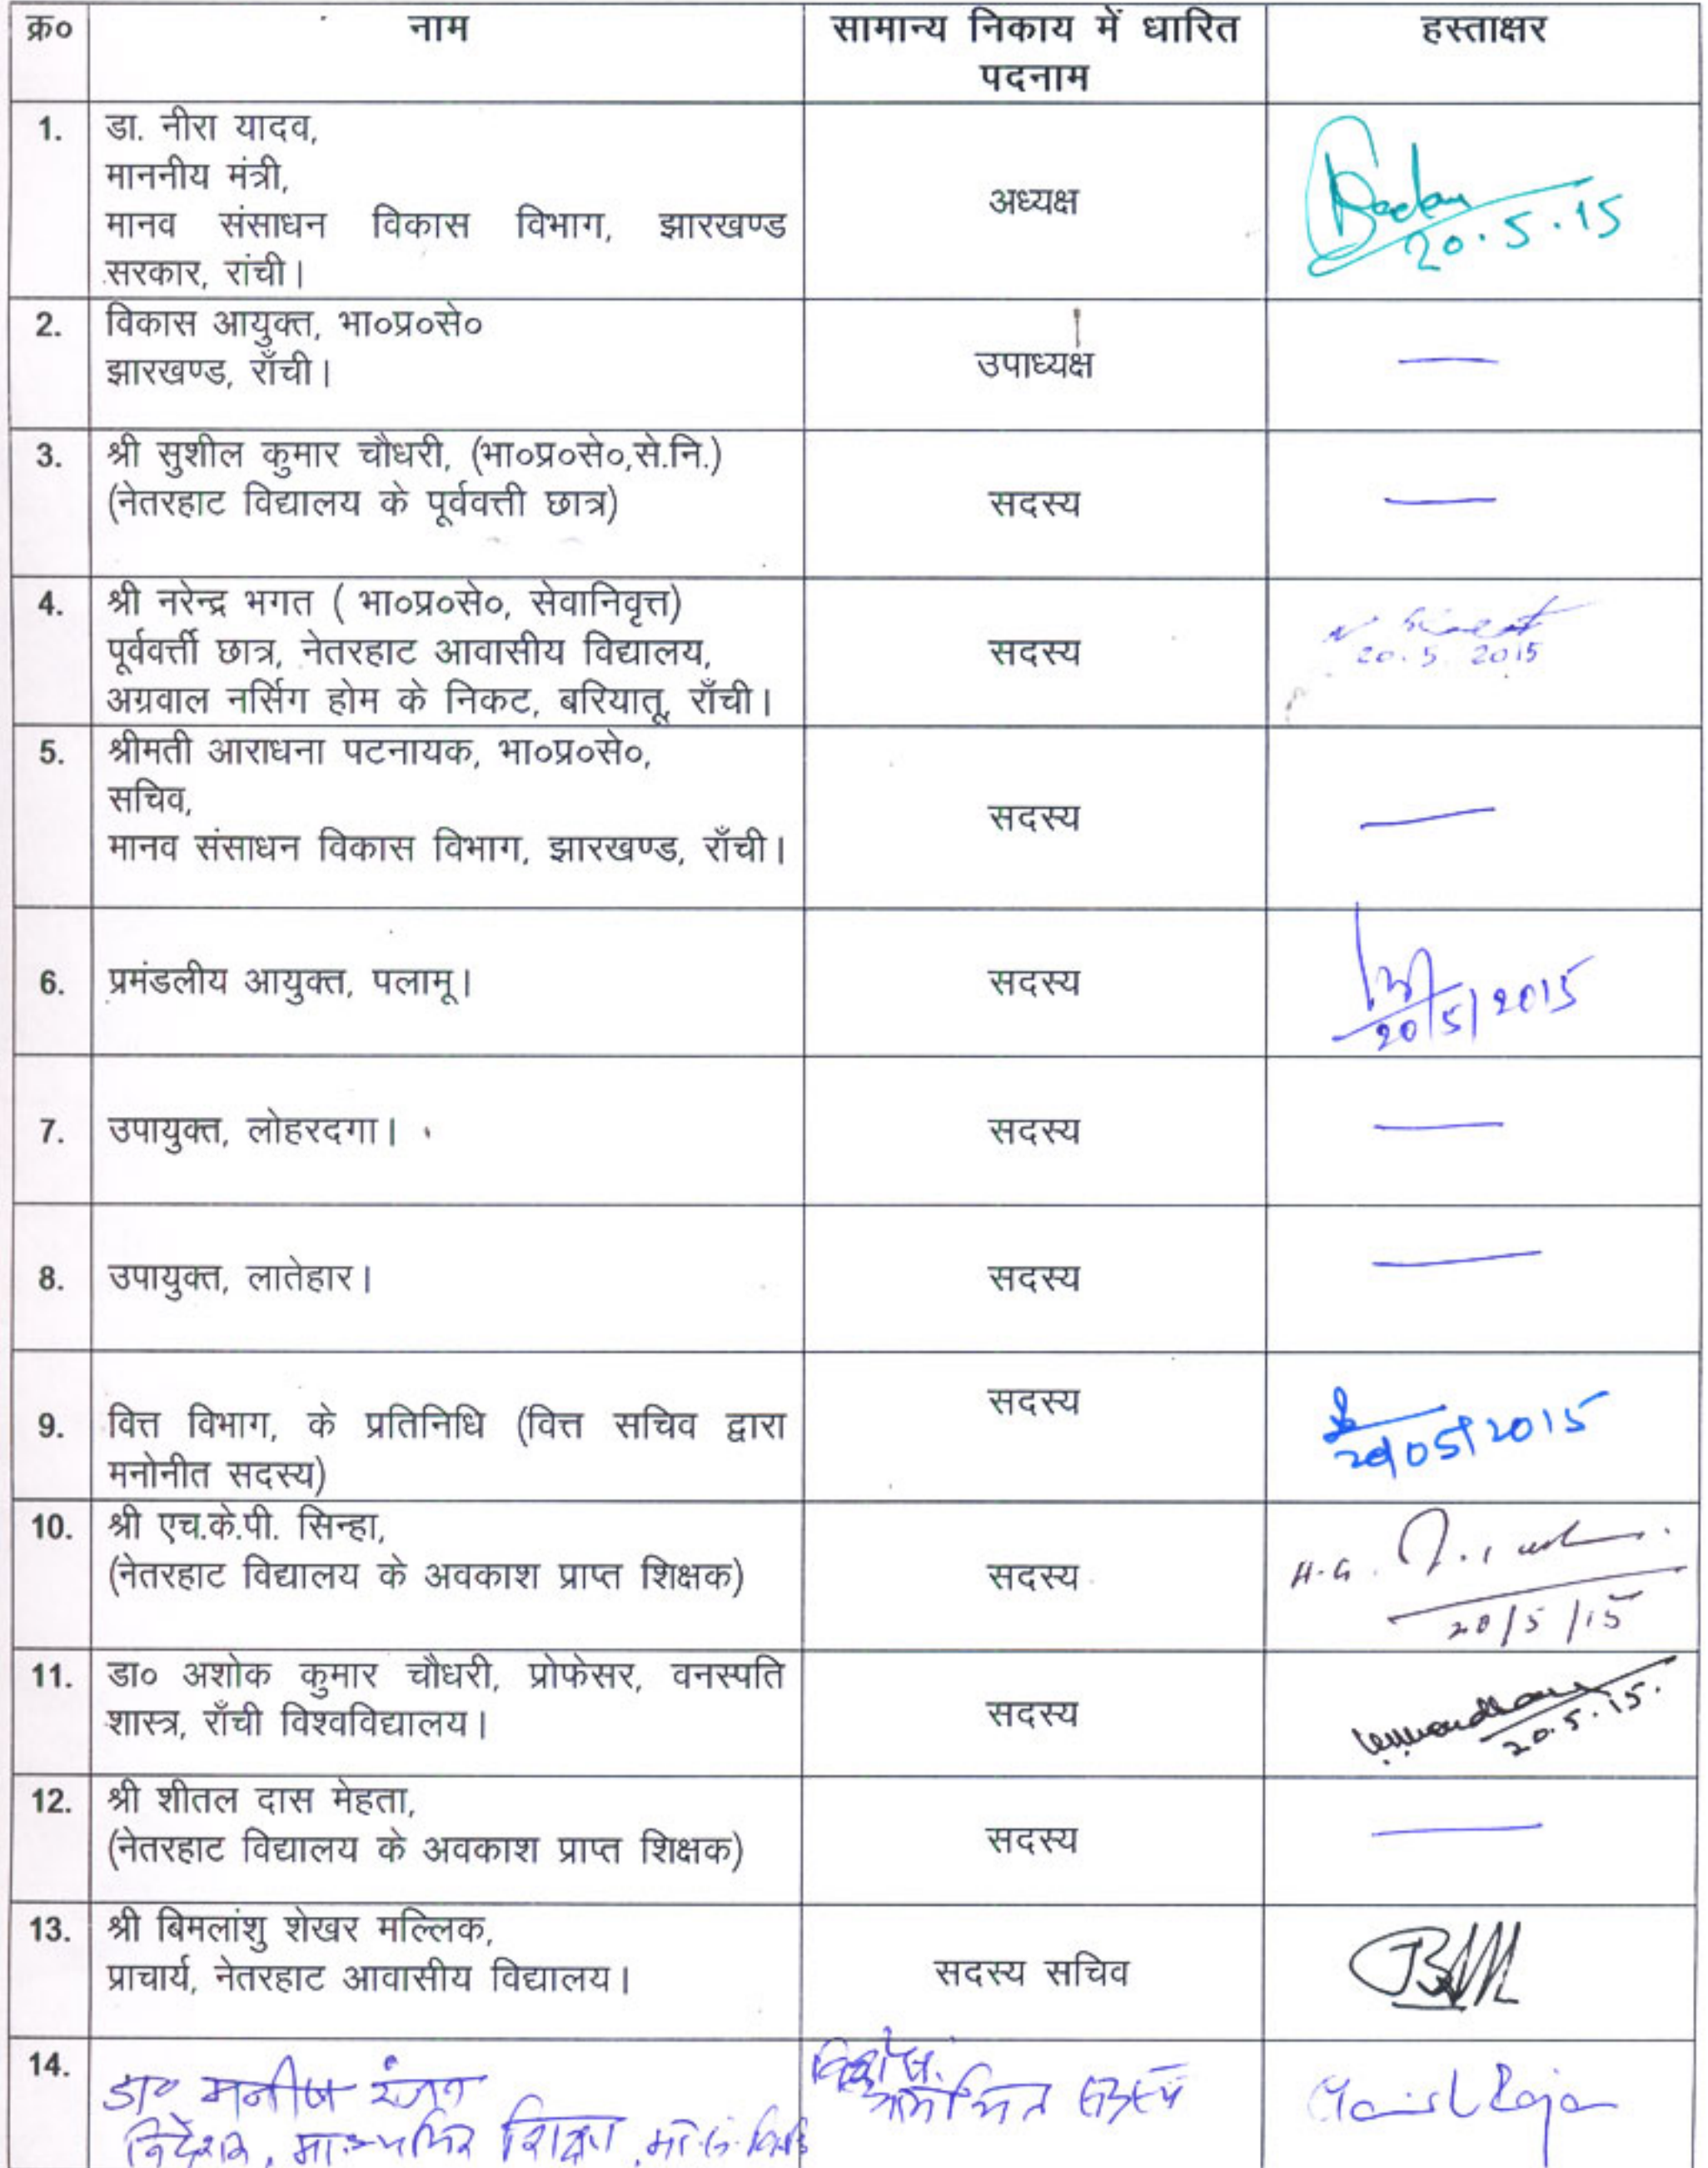 क्र०
नाम
सामान्य निकाय में धारित
पदनाम
हस्ताक्षर
1.
डा. नीरा यादव,
माननीय मंत्री,
मानव संसाधन विकास विभाग, झारखण्ड
सरकार, रांची।
अध्यक्ष
20.5.15
2.
विकास आयुक्त, भा०प्र०से०
झारखण्ड, राँची।
उपाध्यक्ष
3.
श्री सुशील कुमार चौधरी, (भा०प्र०से०,से.नि.)
(नेतरहाट विद्यालय के पूर्ववत्ती छात्र)
सदस्य
4.
श्री नरेन्द्र भगत ( भा०प्र०से०, सेवानिवृत्त)
पूर्ववर्त्ती छात्र, नेतरहाट आवासीय विद्यालय,
अग्रवाल नर्सिग होम के निकट, बरियातू, राँची।
सदस्य
20.5.2015
5.
श्रीमती आराधना पटनायक, भा०प्र०से०,
सचिव,
मानव संसाधन विकास विभाग, झारखण्ड, राँची।
सदस्य
6.
प्रमंडलीय आयुक्त, पलामू।
सदस्य
20/5/2015
7.
उपायुक्त, लोहरदगा।
सदस्य
8.
उपायुक्त, लातेहार।
सदस्य
9.
वित्त विभाग, के प्रतिनिधि (वित्त सचिव द्वारा
मनोनीत सदस्य)
सदस्य
20/05/2015
10.
श्री एच.के.पी. सिन्हा,
(नेतरहाट विद्यालय के अवकाश प्राप्त शिक्षक)
सदस्य
20/5/15
11.
डा० अशोक कुमार चौधरी, प्रोफेसर, वनस्पति
शास्त्र, राँची विश्वविद्यालय।
सदस्य
20.5.15.
12.
श्री शीतल दास मेहता,
(नेतरहाट विद्यालय के अवकाश प्राप्त शिक्षक)
सदस्य
13.
श्री बिमलांशु शेखर मल्लिक,
प्राचार्य, नेतरहाट आवासीय विद्यालय।
सदस्य सचिव
14.
डा० मनीष रंजन
निदेशक, माध्यमिक शिक्षा
आमंत्रित सदस्य